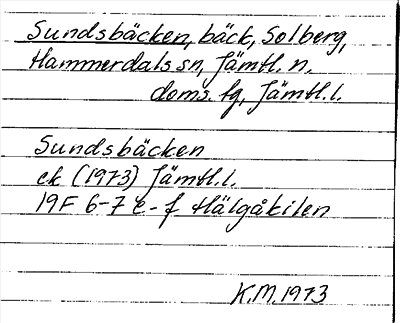 Sundsbäcken, bäck, Solberg,
Hammerdals sn, Jämtl. n.
doms. fg, Jämtl. l.
Sundsbäcken
ek (1973) Jämtl. l.
19F 6-7 e-f Hälgåkilen
K.M. 1973